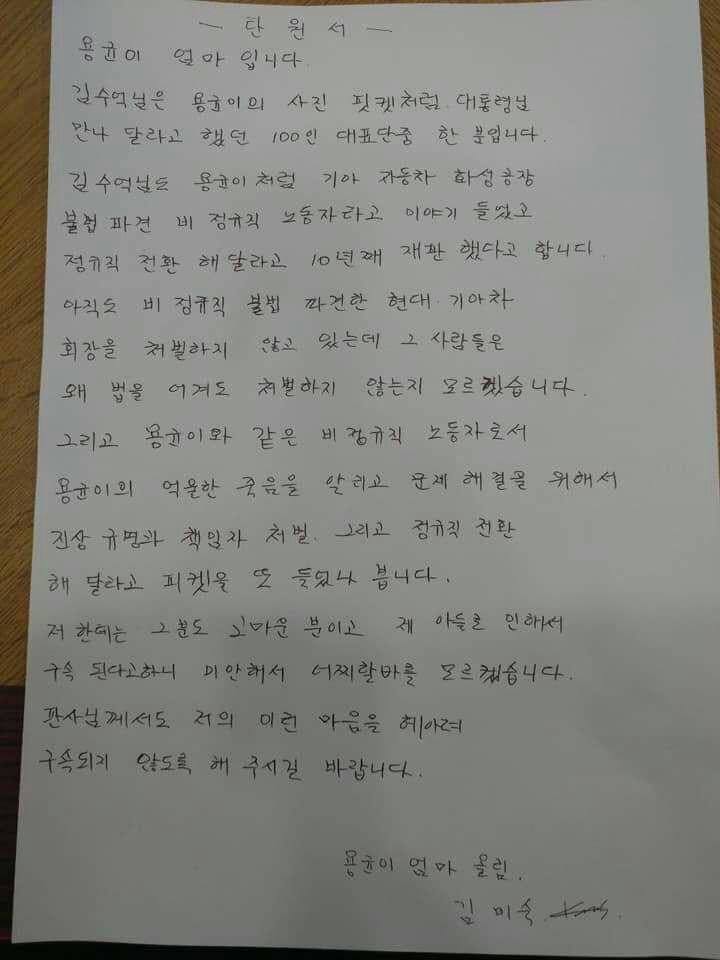 — 탄 원 서 —
용균이 엄마 입니다.
김수억님은 용균이의 사진 핏켓처럼. 대통령님
만나 달라고 했던 100인 대표단중 한 분입니다.
김수억님도 용균이처럼 기아 자동차 화성공장
불법 파견 비 정규직 노동자라고 이야기 들었고
정규직 전환 해달라고 10년째 재판 했다고 합니다.
아직도 비 정규직 불법 파견한 현대·기아차
회장을 처벌하지 않고 있는데 그 사람들은
왜 법을 어겨도 처벌하지 않는지 모르겠습니다.
그리고 용균이와 같은 비정규직 노동자로서
용균이의 억울한 죽음을 알리고 문제 해결을 위해서
진상 규명과 책임자 처벌. 그리고 정규직 전환
해 달라고 피켓을 또 들었나 봅니다.
저 한테는 그분도 고마운 분이고 제 아들로 인해서
구속 된다고하니 미안해서 어찌할바를 모르겠습니다.
판사님께서도 저의 이런 마음을 헤아려
구속되지 않도록 해 주시길 바랍니다.
용균이 엄마 올림.
김 미숙